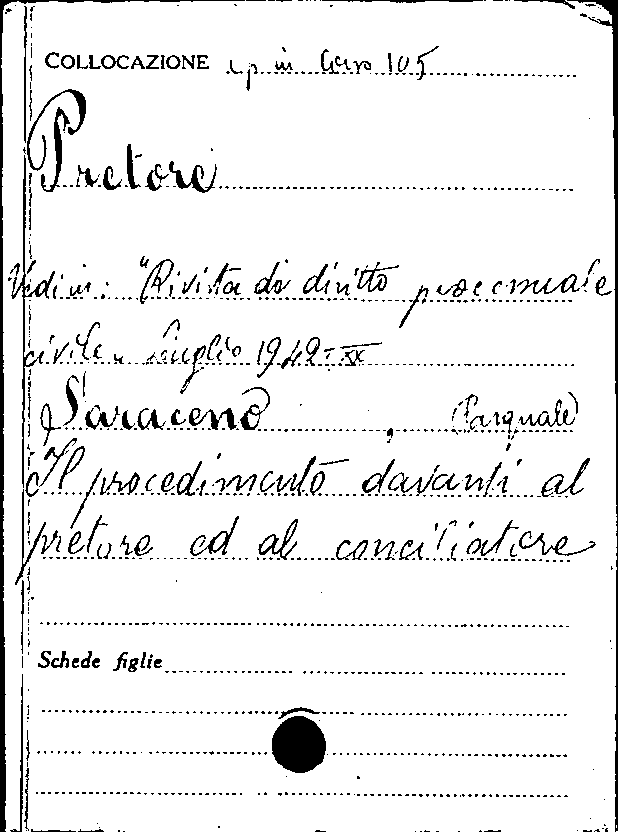 COLLOCAZIONE e p in Corso 105
Pretore
Vedi in: "Rivista di diritto processuale
civile" Luglio 1942-XX
Saraceno, (Pasquale)
Il procedimento davanti al
pretore ed al conciliatore
Schede figlie